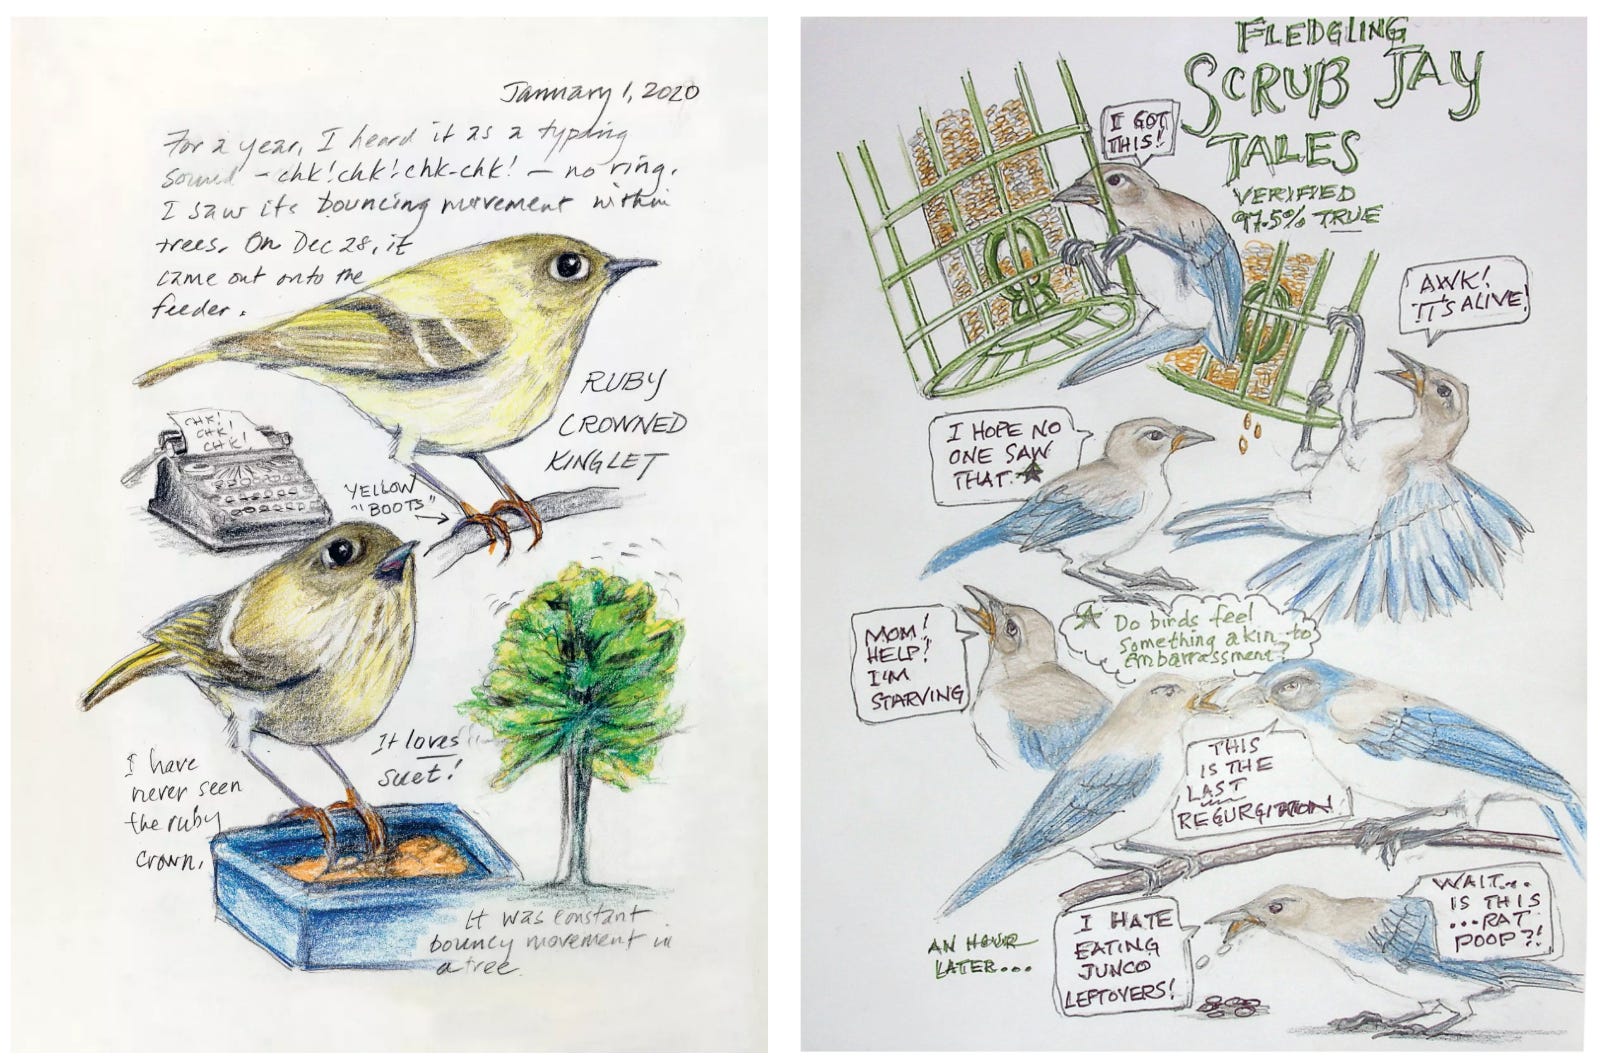 January 1, 2020
For a year, I heard it as a typing
sound - chk! chk! chk-chk! - no ring.
I saw its bouncing movement within
trees. On Dec 28, it
came out onto the
feeder.
RUBY
CROWNED
KINGLET
CHK!
CHK!
CHK!
YELLOW
"BOOTS"
It loves
suet!
I have
never seen
the ruby
crown.
It was constant
bouncy movement in
a tree.
FLEDGLING
SCRUB JAY
TALES
VERIFIED
97.5% TRUE
I GOT
THIS!
AWK!
IT'S ALIVE!
I HOPE NO
ONE SAW
THAT.★
MOM!
HELP!
I'M
STARVING
★ Do birds feel
something akin to
embarrassment?
THIS
IS THE
LAST
REGURGITATION!
AN HOUR
LATER...
I HATE
EATING
JUNCO
LEFTOVERS!
WAIT...
IS THIS
...RAT
POOP?!